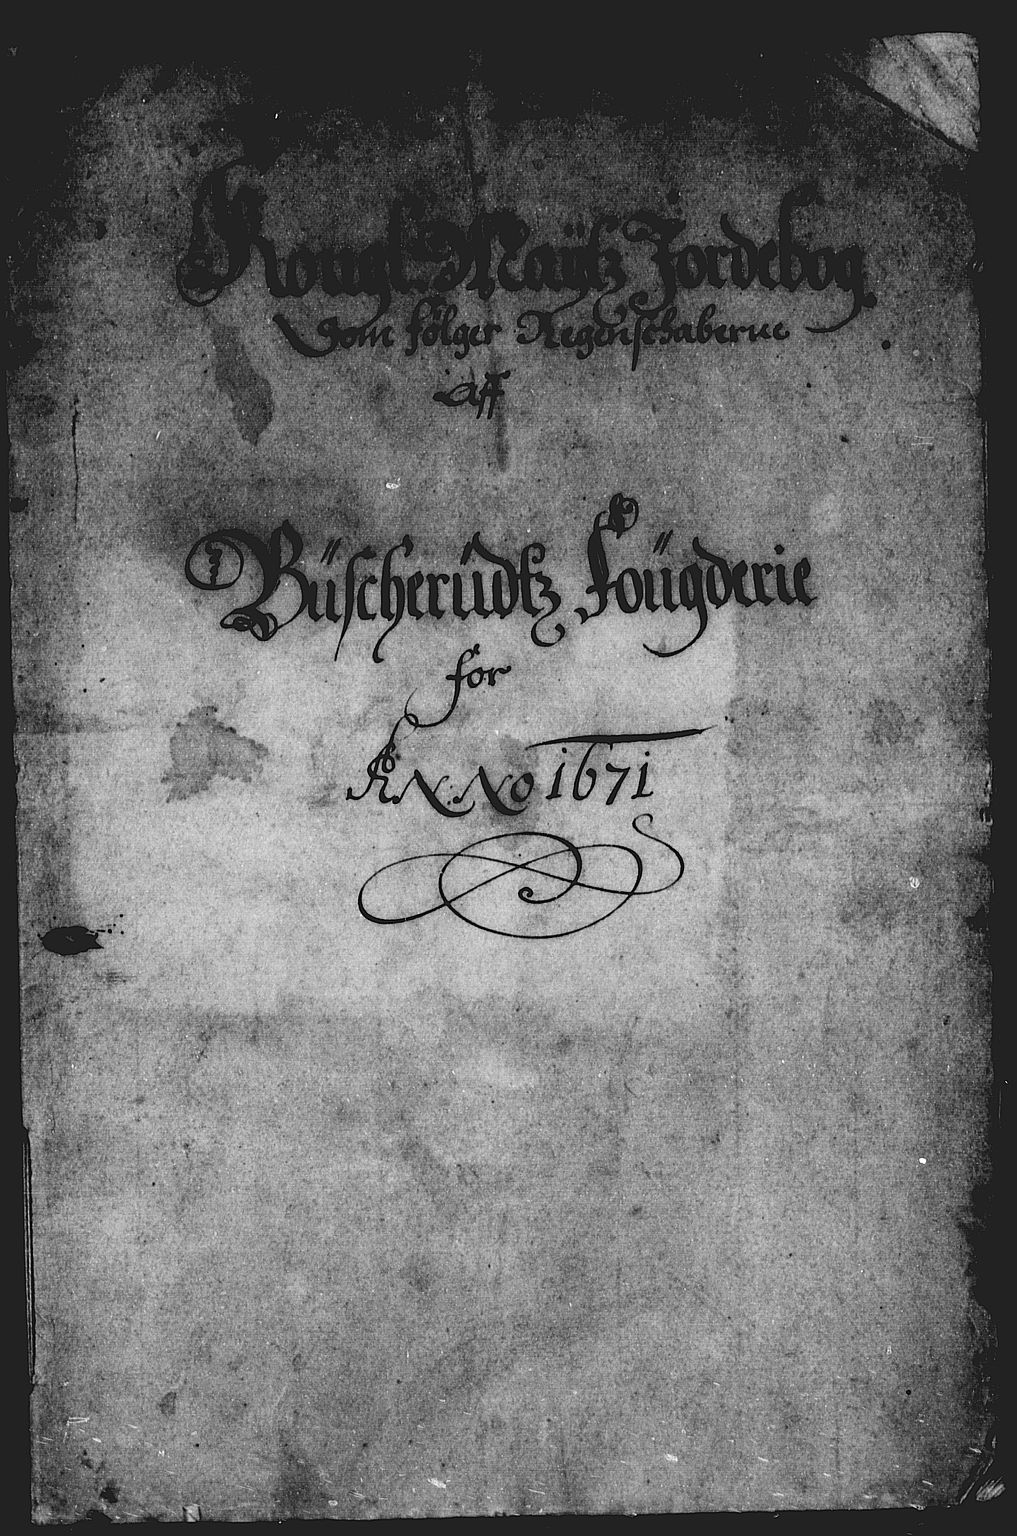 Kongl: Maÿtz Jordebog
Som fölger Regenschaberne
Aff
Büscherüdtz Foügderie
for
ANNo 1671